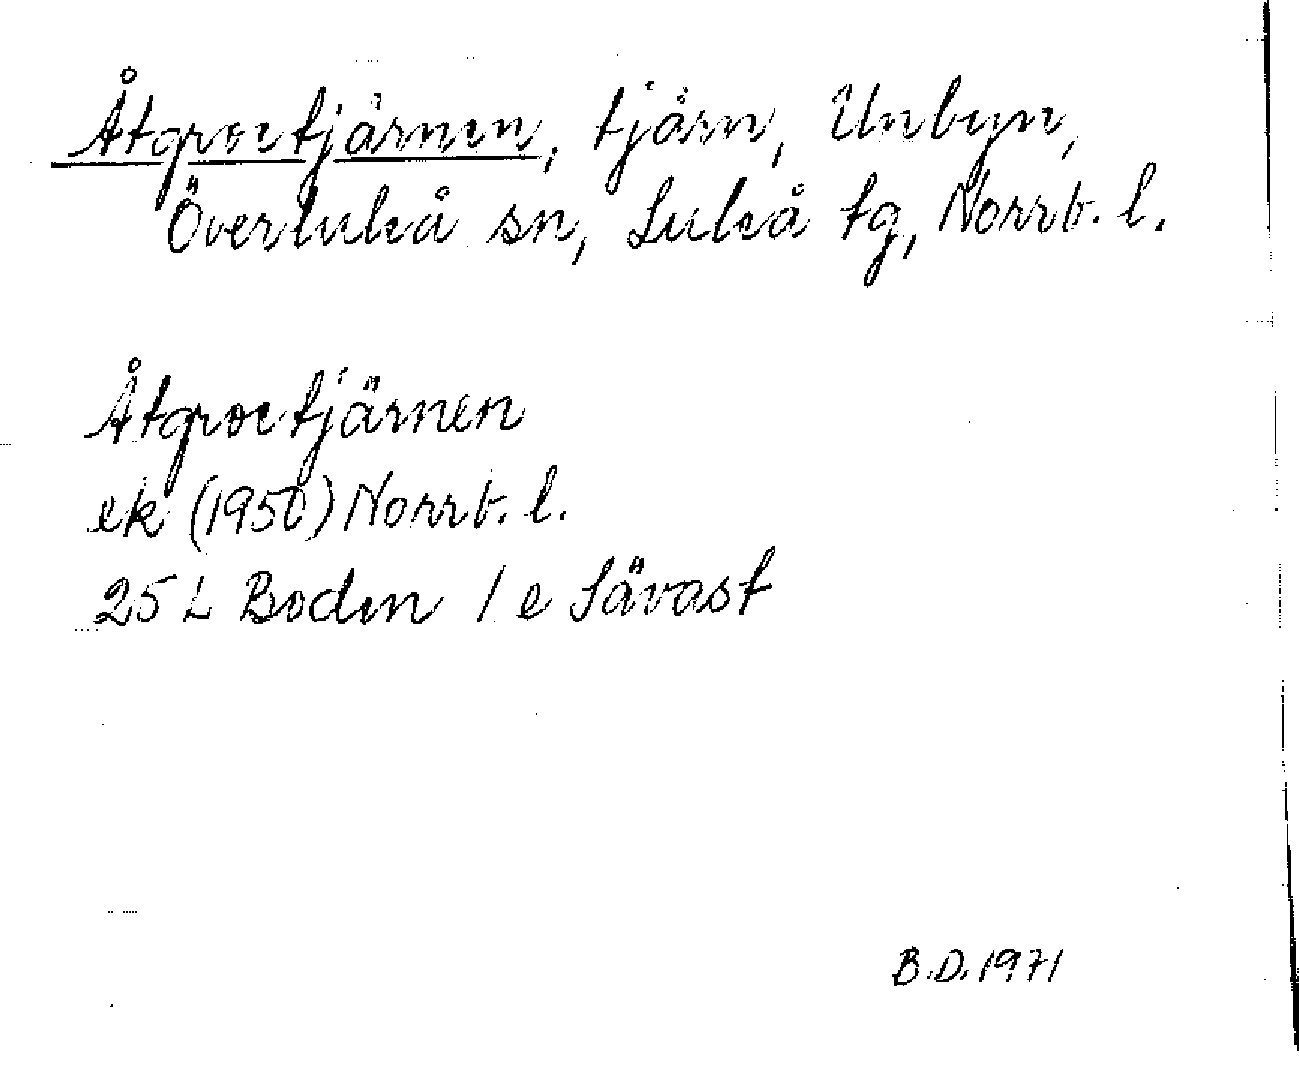 Åtgroetjärnen, tjärn, Unbyn,
Överluleå sn, Luleå tg, Norrb. l.
Åtgroetjärnen
ek (1950) Norrb. l.
25 L Boden 1 e Sävast
B.D. 1971